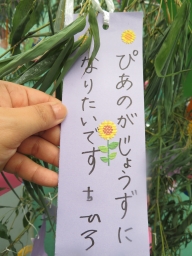 ぴあのがじょうずに
なりたいです ちひろ